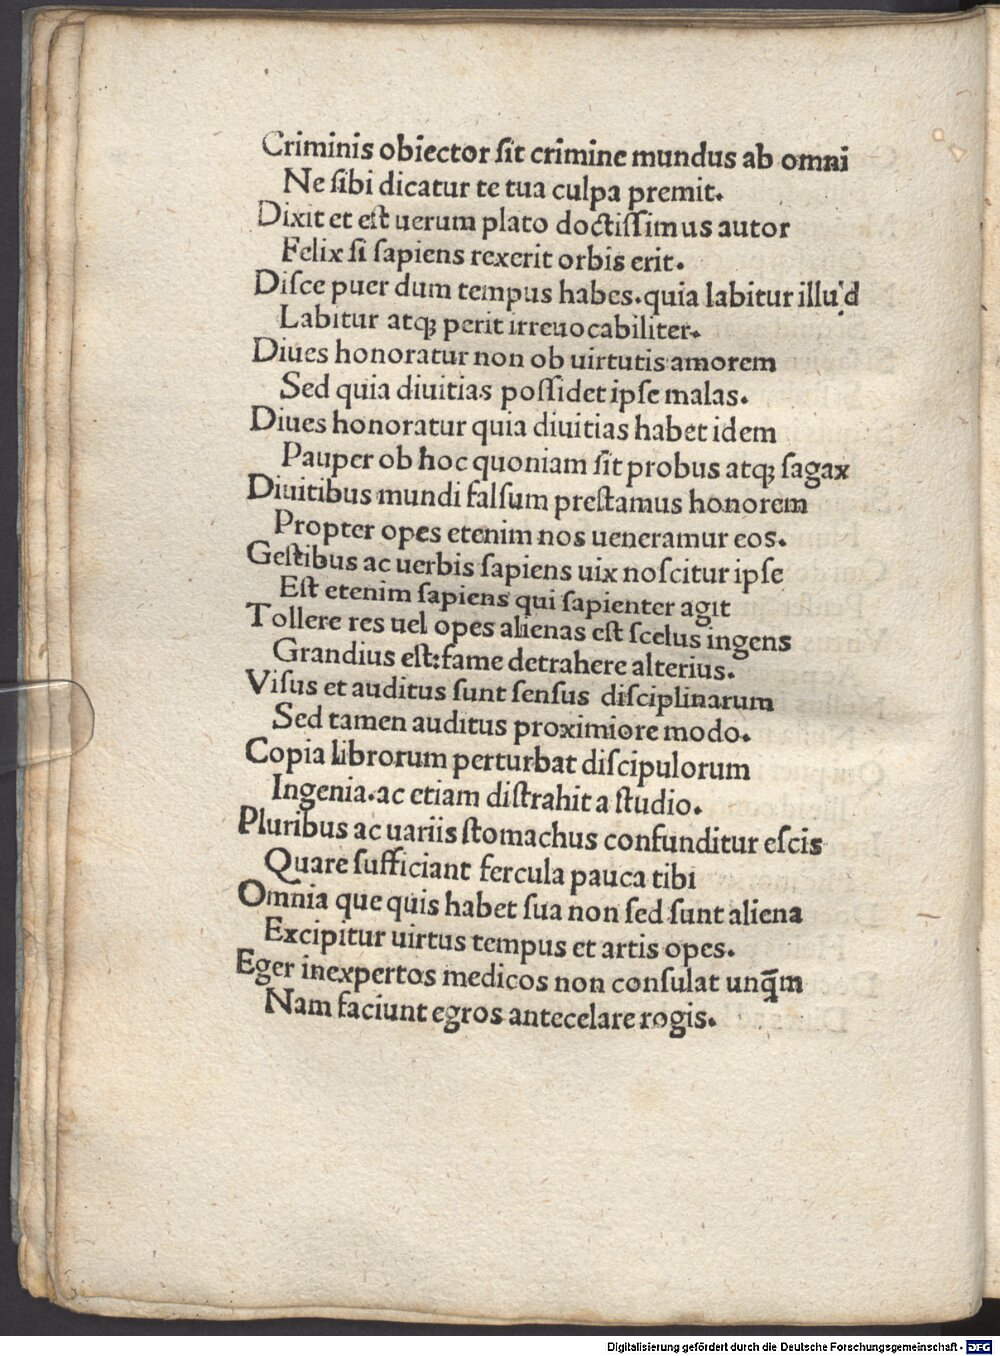 Criminis obiector ſit crimine mundus ab omni
Ne ſibi dicatur te tua culpa premit.
Dixit et eſt uerum plato doctiſſimus autor
Felix ſi ſapiens rexerit orbis erit.
Diſce puer dum tempus habes. quia labitur illu'd
Labitur atqꝫ perit irreuocabiliter.
Diues honoratur non ob uirtutis amorem
Sed quia diuitias poſſidet ipſe malas.
Diues honoratur quia diuitias habet idem
Pauper ob hoc quoniam ſit probus atqꝫ ſagax
Diuitibus mundi falſum preſtamus honorem
Propter opes etenim nos ueneramur eos.
Geſtibus ac uerbis ſapiens uix noſcitur ipſe
Eſt etenim ſapiens qui ſapienter agit
Tollere res uel opes alienas eſt ſcelus ingens
Grandius eſt: fame detrahere alterius.
Viſus et auditus ſunt ſenſus diſciplinarum
Sed tamen auditus proximiore modo.
Copia librorum perturbat diſcipulorum
Ingenia. ac etiam diſtrahit a ſtudio.
Pluribus ac uariis ſtomachus confunditur eſcis
Quare ſufficiant fercula pauca tibi
Omnia que quis habet ſua non ſed ſunt aliena
Excipitur uirtus tempus et artis opes.
Eger inexpertos medicos non conſulat unq̄m
Nam faciunt egros antecelare rogis.
Digitalisierung gefördert durch die Deutsche Forschungsgemeinschaft - DFG